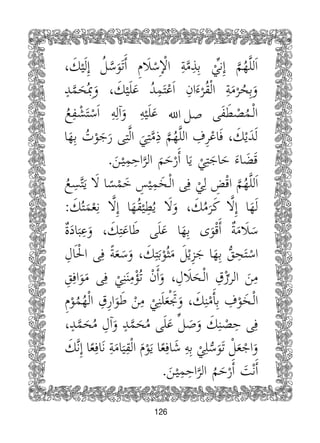 اَللّٰهُمَّ اِنِّيْ بِذِمَّةِ الْاِسْلَامِ أَتَوَسَّلُ اِلَيْكَ،
وَبِحُرْمَةِ الْقُرْءَانِ اَعْتَمِدُ عَلَيْكَ، وَبِمُحَمَّدٍ
الْمُصْطَفَى صل الله عَلَيْهِ وَآلِهِ اَسْتَشْفِعُ
لَدَيْكَ، فَاعْرِفِ اللّٰهُمَّ ذِمَّتِيَ الَّتِى رَجَوْتُ بِهَا
قَضَاءَ حَاجَتِيْ يَا أَرْحَمَ الرَّاحِمِيْنَ.
اَللّٰهُمَّ اقْضِ لِيْ فِى الْخَمِيْسِ خَمْسًا لَا يَتَّسِعُ
لَهَا اِلَّا كَرَمُكَ، وَلَا يُطِيْقُهَا اِلَّا نِعَمُكَ:
سَلَامَةً أَقْوَى بِهَا عَلَى طَاعَتِكَ، وَعِبَادَةً
اَسْتَحِقُّ بِهَا جَزِيْلَ مَثُوْبَتِكَ، وَسَعَةً فِى الْحَالِ
مِنَ الرِّزْقِ الْحَلَالِ، وَأَنْ تُؤْمِنَنِيْ فِى مَوَاقِفِ
الْخَوْفِ بِأَمْنِكَ، وَتَجْعَلَنِيْ مِنْ طَوَارِقِ الْهُمُوْمِ
فِى حِصْنِكَ وَصَلِّ عَلَى مُحَمَّدٍ وَآلِ مُحَمَّدٍ،
وَاجْعَلْ تَوَسُّلِيْ بِهِ شَافِعًا يَوْمَ الْقِيَامَةِ نَافِعًا اِنَّكَ
أَنْتَ أَرْحَمُ الرَّاحِمِيْنَ.
126